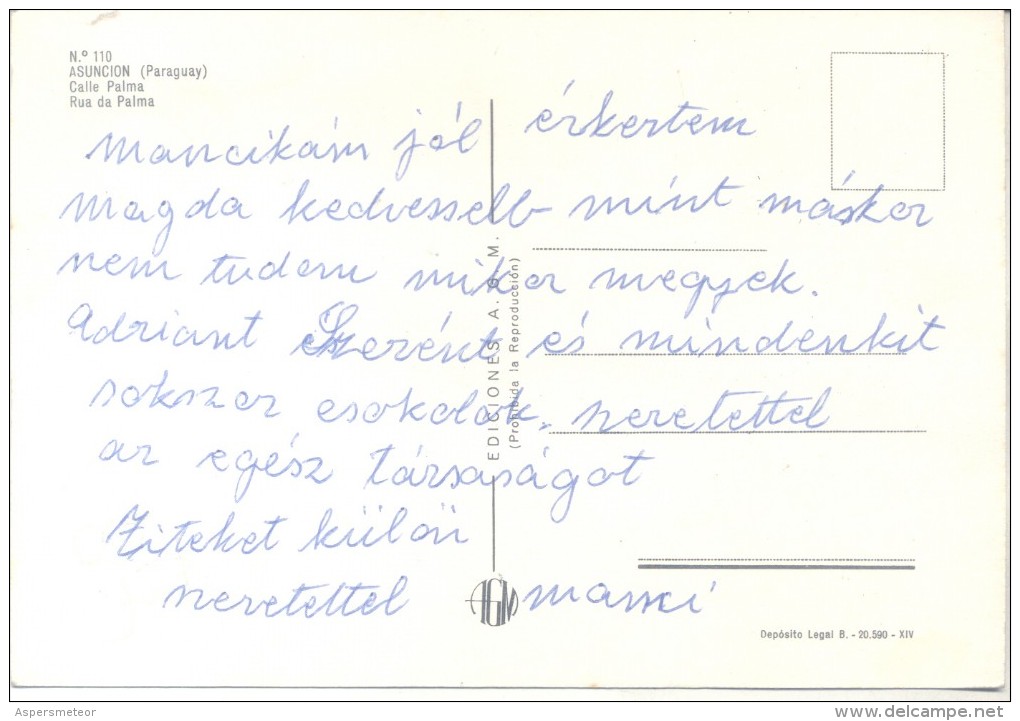 N.º 110
ASUNCION (Paraguay)
Calle Palma
Rua da Palma
Mancikám jól érkertem
Magda kedvessebb mint máskor
nem tudom mikor megyek.
Adriant és mindenkit
sokszor csokolok. szeretettel
az egész társaságot
Ziteket külön
szeretettel Manci
EDICIONES A. G. M.
(Prohibida la Reproducción)
AGM
Depósito Legal B. - 20.590 - XIV
Aspersmeteor
delcampe.net